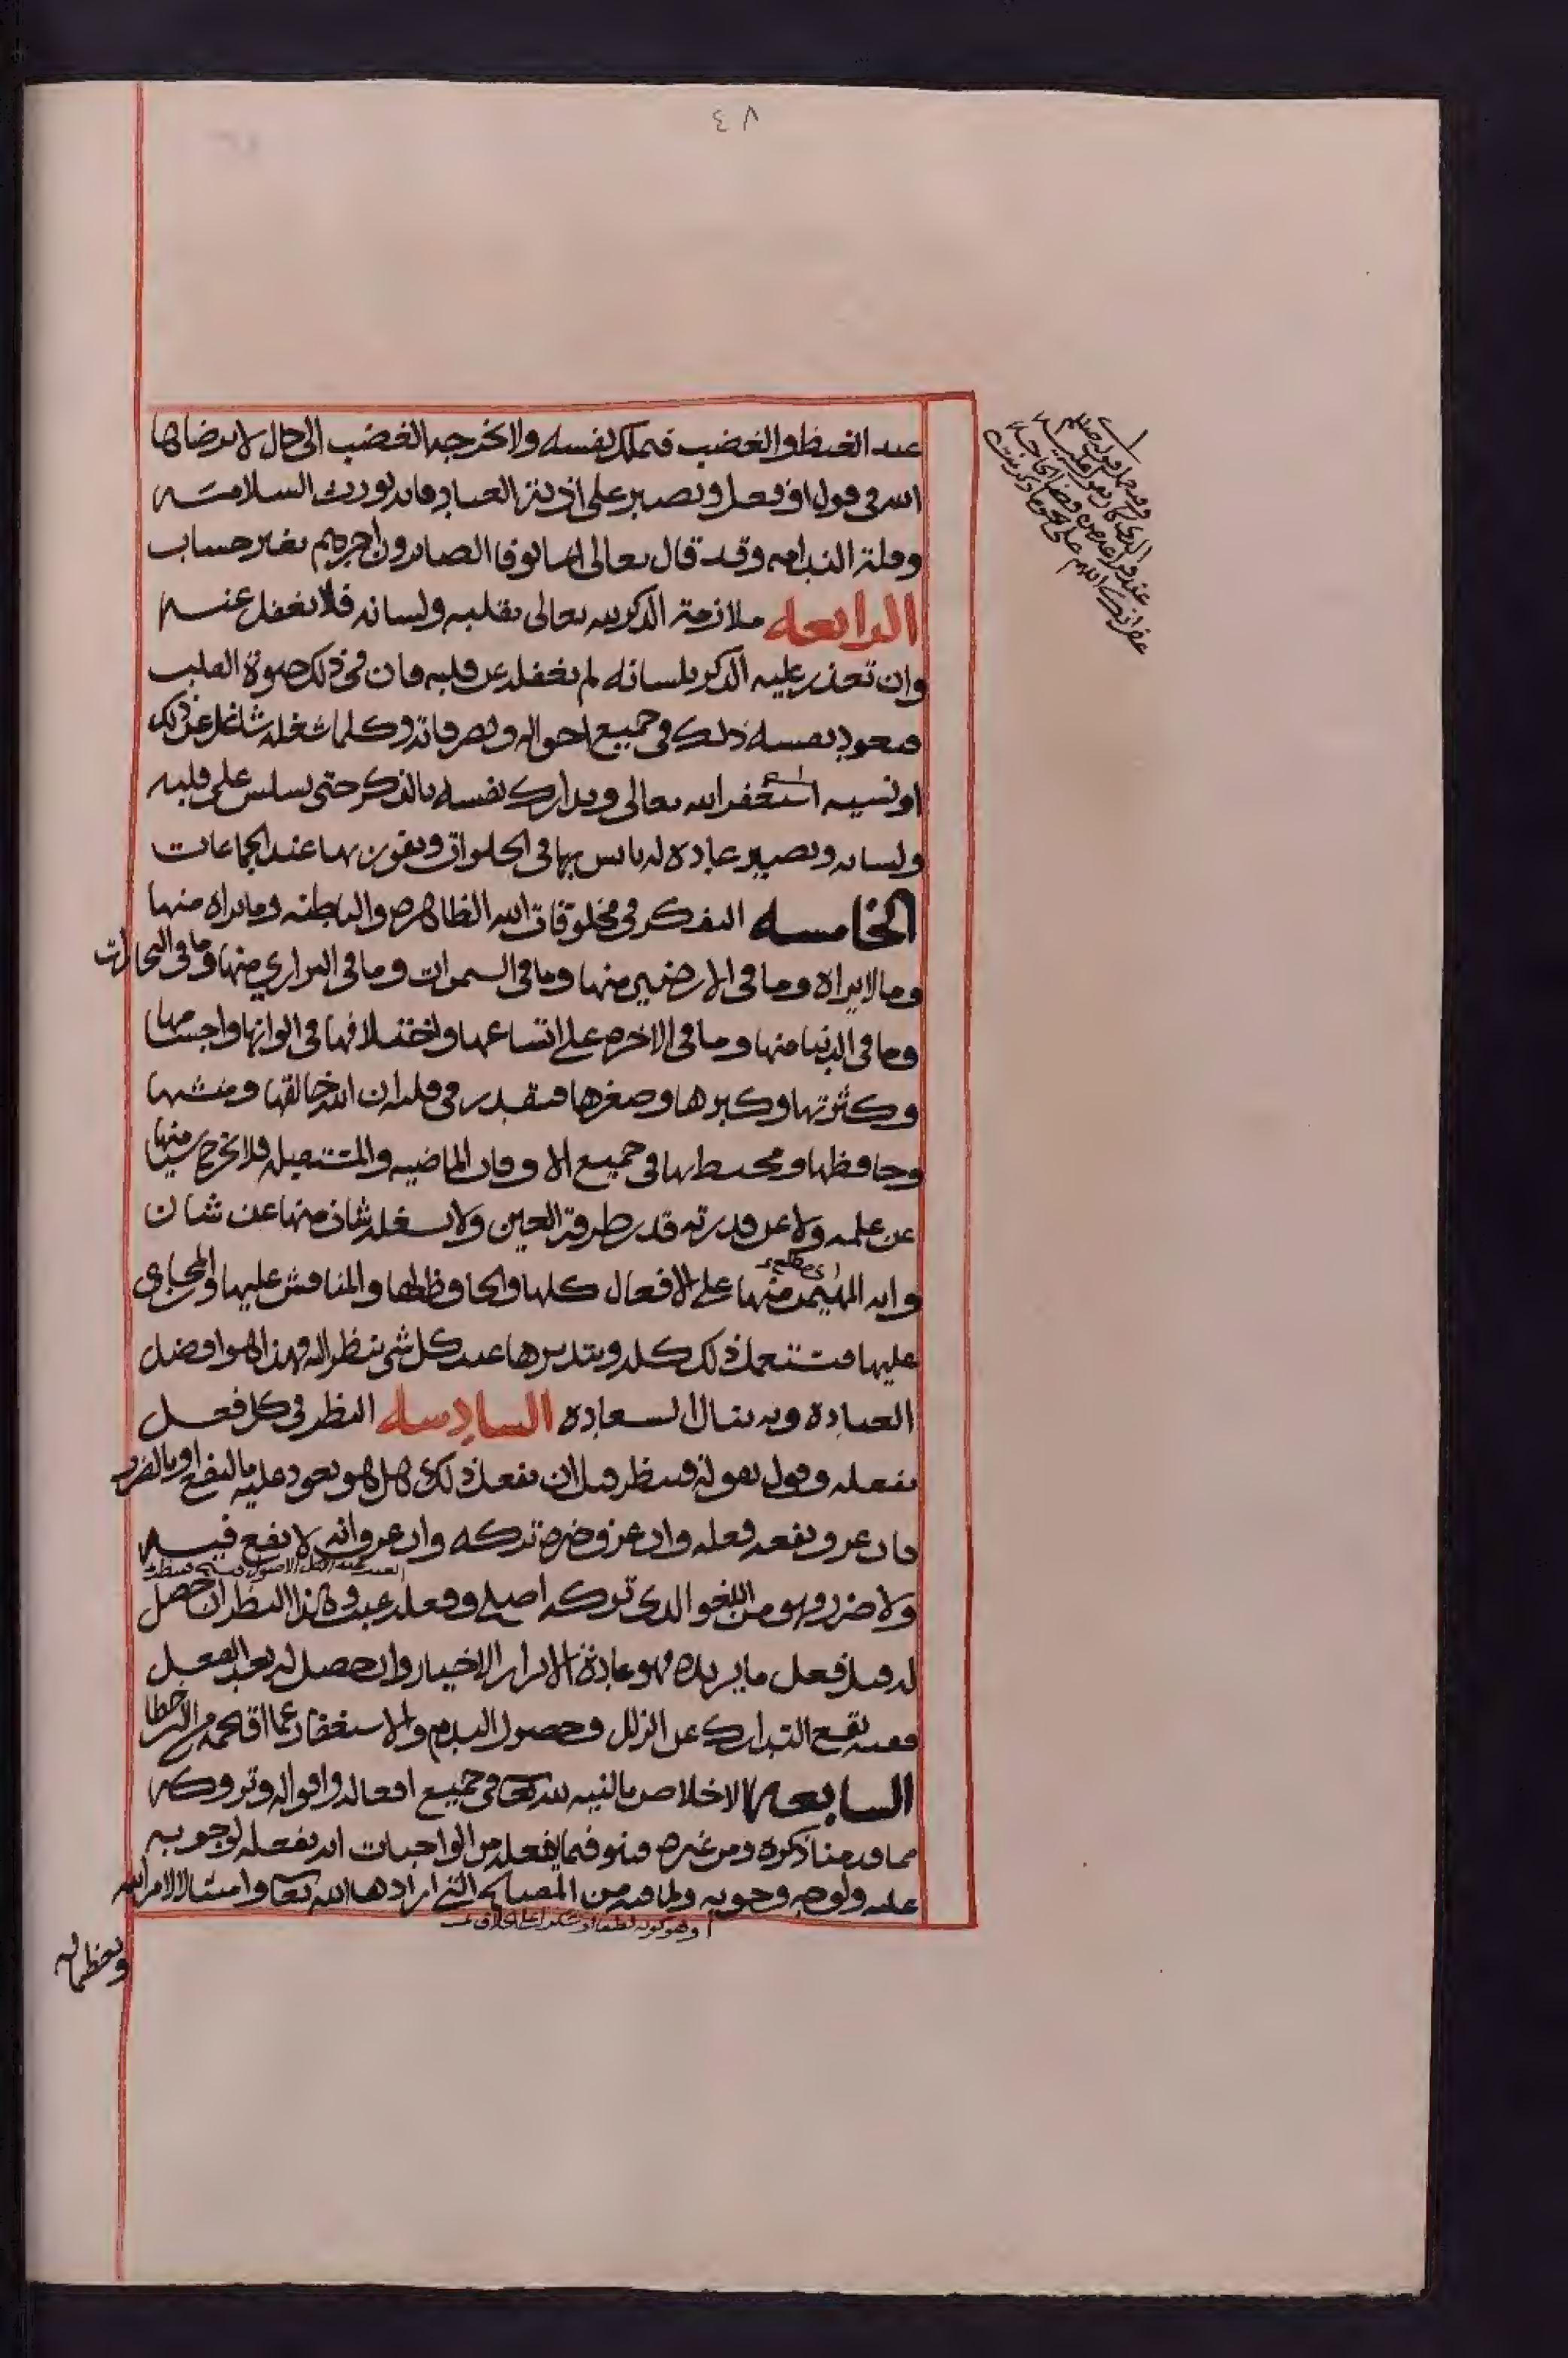 ٤٨
عند الغيظ والغضب فيملك نفسه ولا يخرجه الغضب الى حال لا يرضاها
الله في قول او فعل ويصبر على اذية العباد فانه يورث السلامة
وقلة الندامه وقد قال تعالى انما يوفا الصابرون اجرهم بغير حساب
الرابعه ملازمة الذكر لله تعالى بقلبه ولسانه فلا يغفل عنه
وان تعذر عليه الذكر بلسانه لم يغفله عن قلبه فان في ذلك حيوة القلب
فيعود نفسه ذلك في جميع احواله وتصرفاته وكلما شغله شاغل عن ذلك
او نسيه استغفر الله تعالى ويدارك نفسه بالذكر حتى يسلس على قلبه
ولسانه ويصير عادة له يانس بها في الخلوات ويفوز بها عند الجماعات
الخامسه التفكر في مخلوقات الله الظاهره والباطنه وما يراه منها
وما لا يراه وما في الارضين منها وما في السموات وما في البراري منها وما في البحارات
وما في الدنيا منها وما في الاخره على اتساعها واختلافها في الوانها واجسامها
وكثرتها وكبرها وصغرها فيقدر في قلبه ان الله خالقها ومنشيها
وحافظها ومحيط بها في جميع الاوقات الماضيه والمستقبله فلا يخرج شيئا منها
عن علمه ولا عن قدرته قدر طرفة العين ولا يشغله شان منها عن شان
وانه المهيمن منها على الافعال كلها والحافظ لها والمناقش عليها والمجازى
عليها فيستعمل ذلك كله ويتدبرها عند كل شي ينظر اليه فهذا هو افضل
العبادة وبه ينال السعادة السادسه النظر في كل فعل
يفعله وقول يقوله فينظر قبل ان يفعل ذلك هل هو يعود عليه بالنفع او بالضرر
فان عرف نفعه فعله وان عرف ضره تركه وان عرف انه لا نفع فيه
ولا ضرر فهو من اللغو الذى تركه اصلح وفعله عبث وهذا النظر ان حصل
له قبل فعل ما يريده فهو عادة الابرار الاخيار وان حصل له بعد الفعل
فعنه يقع التدارك عن الزلل وحصول الندم والاستغفار عما اقتحمه من الخطا
السابعه الاخلاص بالنيه لله تعالى في جميع افعاله واقواله وتروكه
مما قدمنا ذكره ومن غيره فينو فيما يفعله من الواجبات انه يفعله لوجوبه
عليه ولوجه وجوبه ولما فيه من المصالح التي ارادها الله تعالى وامتثالا لامر الله
وتعظيما له